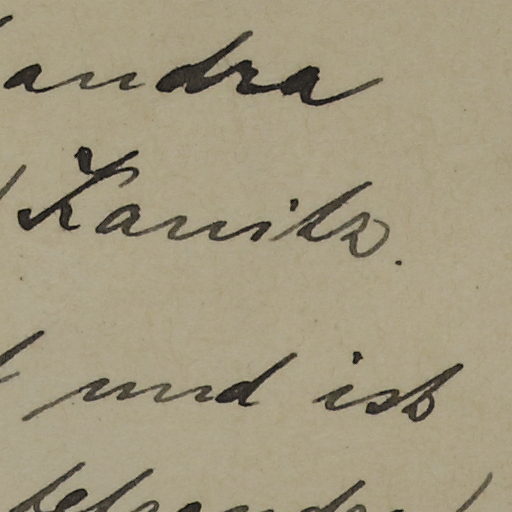 andra
Kanitz.
und ist